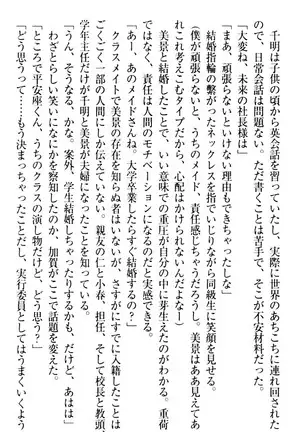 千明は子供の頃から英会話を習っていたし、実際に世界のあちこちに連れ回されたの
で、日常会話は問題ない。ただ書くことは苦手で、そこが不安材料だった。
「大変ね、未来の社長様は」
「まあ、頑張らないといけない理由もできちゃったしな」
結婚指輪の繋がったネックレスをいじりながら同級生に笑顔を見せる。
（僕が頑張らないと、うちのメイド、責任感じちゃうだろうし。美景はああ見えてあ
れこれ考えこむタイプだから、心配はかけられないんだよなー）
美景と結婚したことで、いい意味での重圧が自分の中に芽生えたのがわかる。重荷
ではなく、責任は人間のモチベーションになるのだと実感できる。
「あー、あのメイドさんね。大学卒業したらすぐ結婚するの？」
クラスメイトで美景の存在を知らぬ者はいないが、さすがにすでに入籍したことは
ごくごく一部の人間にしか伝えていない。親友のこしと小春、担任、そして校長と教頭、
学年主任だけが千明と美景が夫婦になったことを知っている。
「うん、そうなるかな。案外、学生結婚しちゃったりするかも、だけど、あはは」
わざとらしい笑いになにかを察知したのか、加賀がここで話題を変えた。
「ところで平安座くん、うちのクラスの演し物だけど、どう思う？」
「どう思うって……もう決まっちゃったことだし、実行委員としてはうまくいくよう